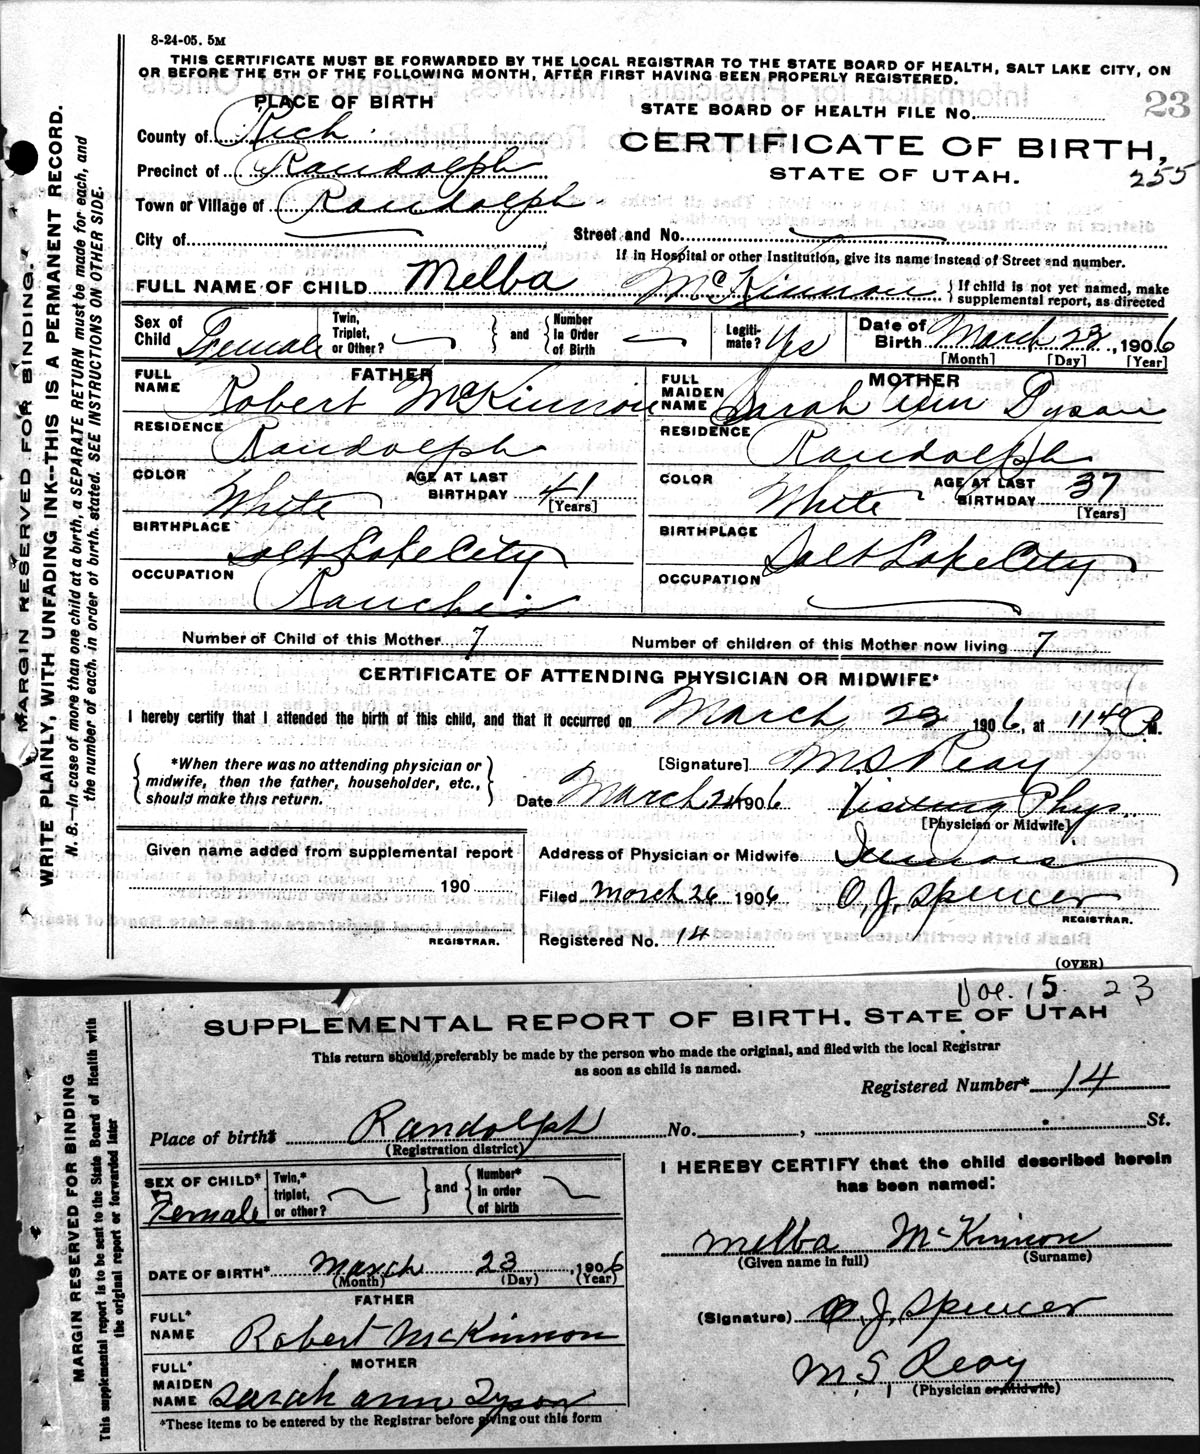 8-24-05. 5M
THIS CERTIFICATE MUST BE FORWARDED BY THE LOCAL REGISTRAR TO THE STATE BOARD OF HEALTH, SALT LAKE CITY, ON
OR BEFORE THE 5TH OF THE FOLLOWING MONTH, AFTER FIRST HAVING BEEN PROPERLY REGISTERED.
PLACE OF BIRTH
STATE BOARD OF HEALTH FILE No. 23
County of Rich
CERTIFICATE OF BIRTH,
Precinct of Randolph
STATE OF UTAH. 255
Town or Village of Randolph
City of Street and No.
If in Hospital or other Institution, give its name instead of Street and number.
FULL NAME OF CHILD Melba McKinnon { If child is not yet named, make
supplemental report, as directed
Sex of Child Female Twin, Triplet, or Other? and Number In Order of Birth Legiti-mate? Yes Date of Birth March 23, 1906
[Month] [Day] [Year]
FATHER MOTHER
FULL NAME Robert McKinnon FULL MAIDEN NAME Sarah Ann Dyson
RESIDENCE Randolph RESIDENCE Randolph
COLOR White AGE AT LAST BIRTHDAY 41 [Years] COLOR White AGE AT LAST BIRTHDAY 37 [Years]
BIRTHPLACE Salt Lake City BIRTHPLACE Salt Lake City
OCCUPATION Rancher OCCUPATION
Number of Child of this Mother 7 Number of children of this Mother now living 7
CERTIFICATE OF ATTENDING PHYSICIAN OR MIDWIFE*
I hereby certify that I attended the birth of this child, and that it occurred on March 23 1906, at 1140 P. M.
*When there was no attending physician or
midwife, then the father, householder, etc.,
should make this return.
[Signature] M. S. Reay
Date March 24 1906 Visiting Phys.
[Physician or Midwife]
Given name added from supplemental report
190
REGISTRAR.
Address of Physician or Midwife
Filed March 26 1906 O. J. Spencer
REGISTRAR.
Registered No. 14
(OVER)
MARGIN RESERVED FOR BINDING.
WRITE PLAINLY, WITH UNFADING INK--THIS IS A PERMANENT RECORD.
N. B.—In case of more than one child at a birth, a SEPARATE RETURN must be made for each, and
the number of each, in order of birth, stated. SEE INSTRUCTIONS ON OTHER SIDE.
Vol. 15 23
SUPPLEMENTAL REPORT OF BIRTH. STATE OF UTAH
This return should preferably be made by the person who made the original, and filed with the local Registrar
as soon as child is named.
Registered Number* 14
Place of birth* Randolph No. , St.
(Registration district)
SEX OF CHILD* Female Twin,* triplet, or other? and Number* in order of birth
I HEREBY CERTIFY that the child described herein
has been named:
Melba McKinnon
(Given name in full) (Surname)
DATE OF BIRTH* March 23, 1906
(Month) (Day) (Year)
FATHER
FULL* NAME Robert McKinnon
(Signature) O. J. Spencer
MOTHER
FULL* MAIDEN NAME Sarah Ann Dyson
M. S. Reay
(Physician or Midwife)
*These items to be entered by the Registrar before giving out this form
MARGIN RESERVED FOR BINDING
This supplemental report is to be sent to the State Board of Health with
the original report or forwarded later